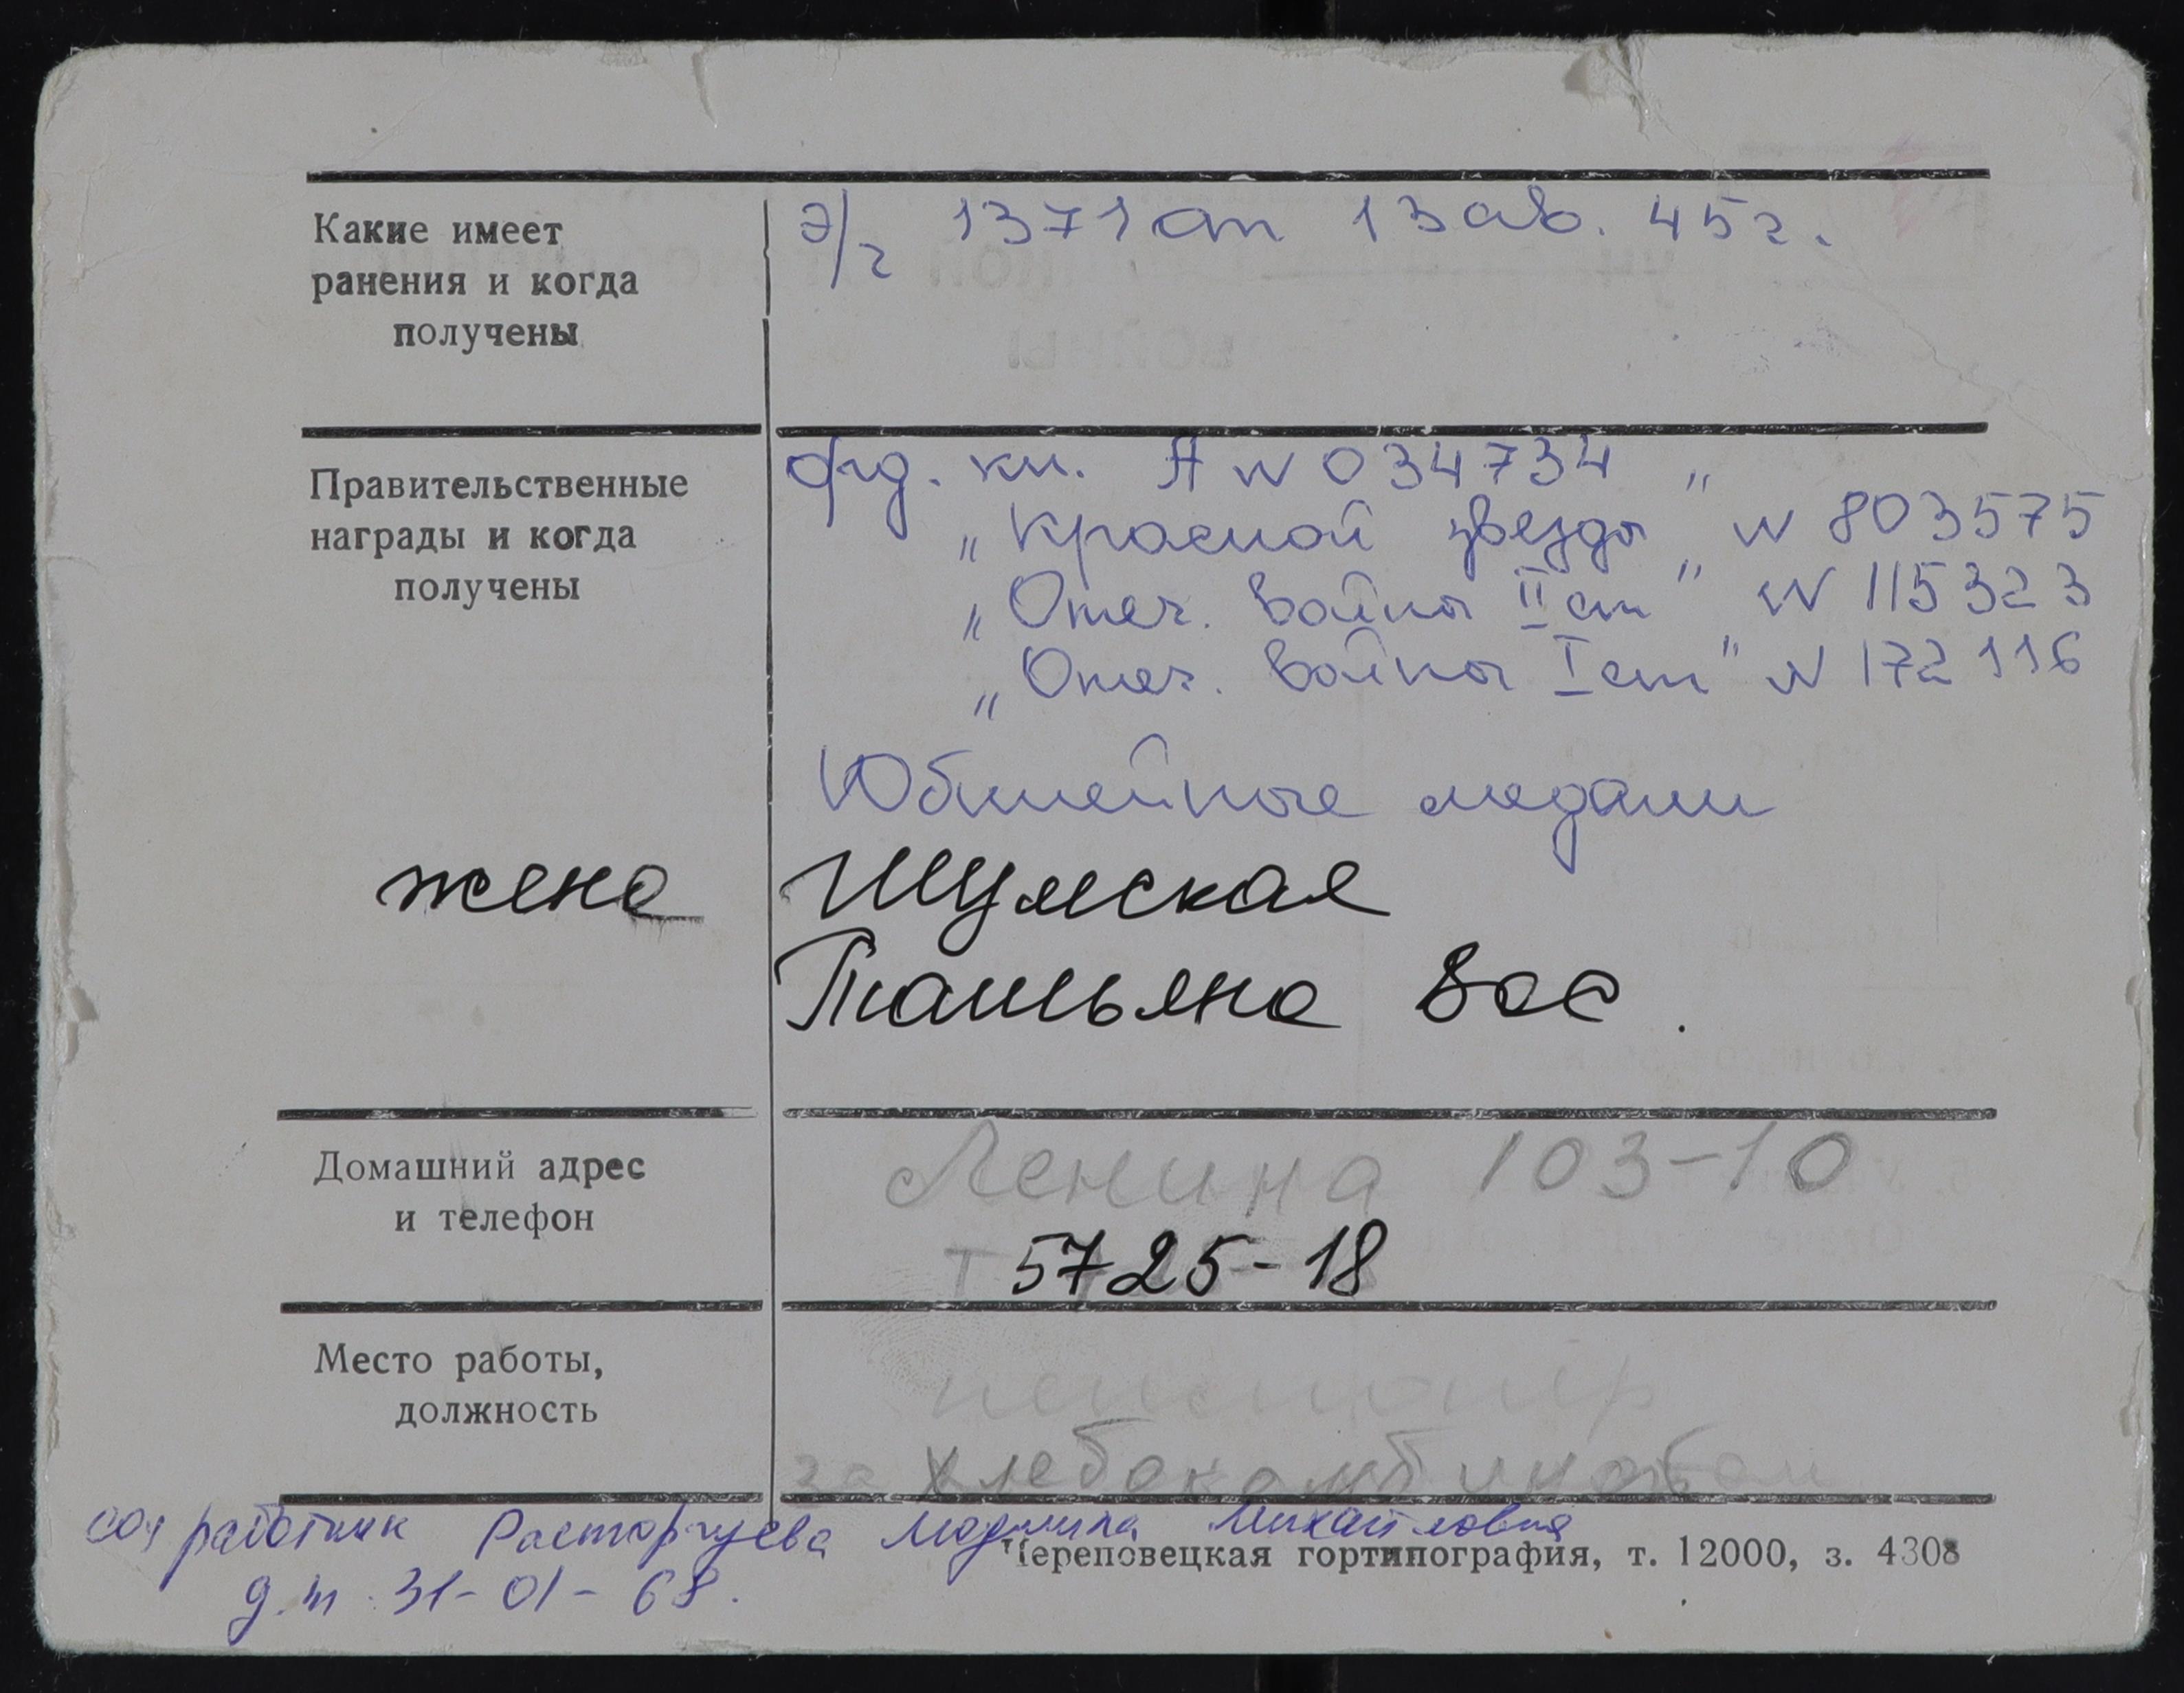 Какие имеет
ранения и когда
получены
э/г 1371 от 13 ав. 45 г.
Правительственные
награды и когда
получены
орд. кн. А № 034734 „
„Красной звезды„ № 803575
„Отеч. войны II ст" № 115323
„Отеч. войны I ст" № 172116
Юбилейные медали
жена Шумская
Татьяна Вас.
Домашний адрес
и телефон
Ленина 103-10
т 5725-18
Место работы,
должность
пенсионер
за хлебокомбинатом
соц работник Расторгуева Людмила Михайловна
д.т. 31-01-68.
Череповецкая гортипография, т. 12000, з. 4308